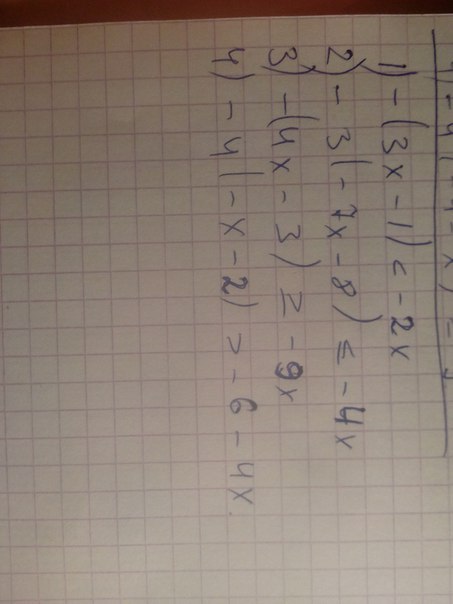 1) - (3x - 1) < - 2x
2) - 3(- 7x - 8) ≤ - 4x
3) - (4x - 3) ≥ - 9x
4) - 4(- x - 2) > - 6 - 4x.